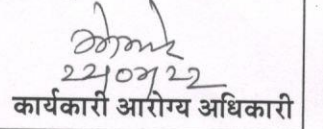 22/07/22
कार्यकारी आरोग्य अधिकारी